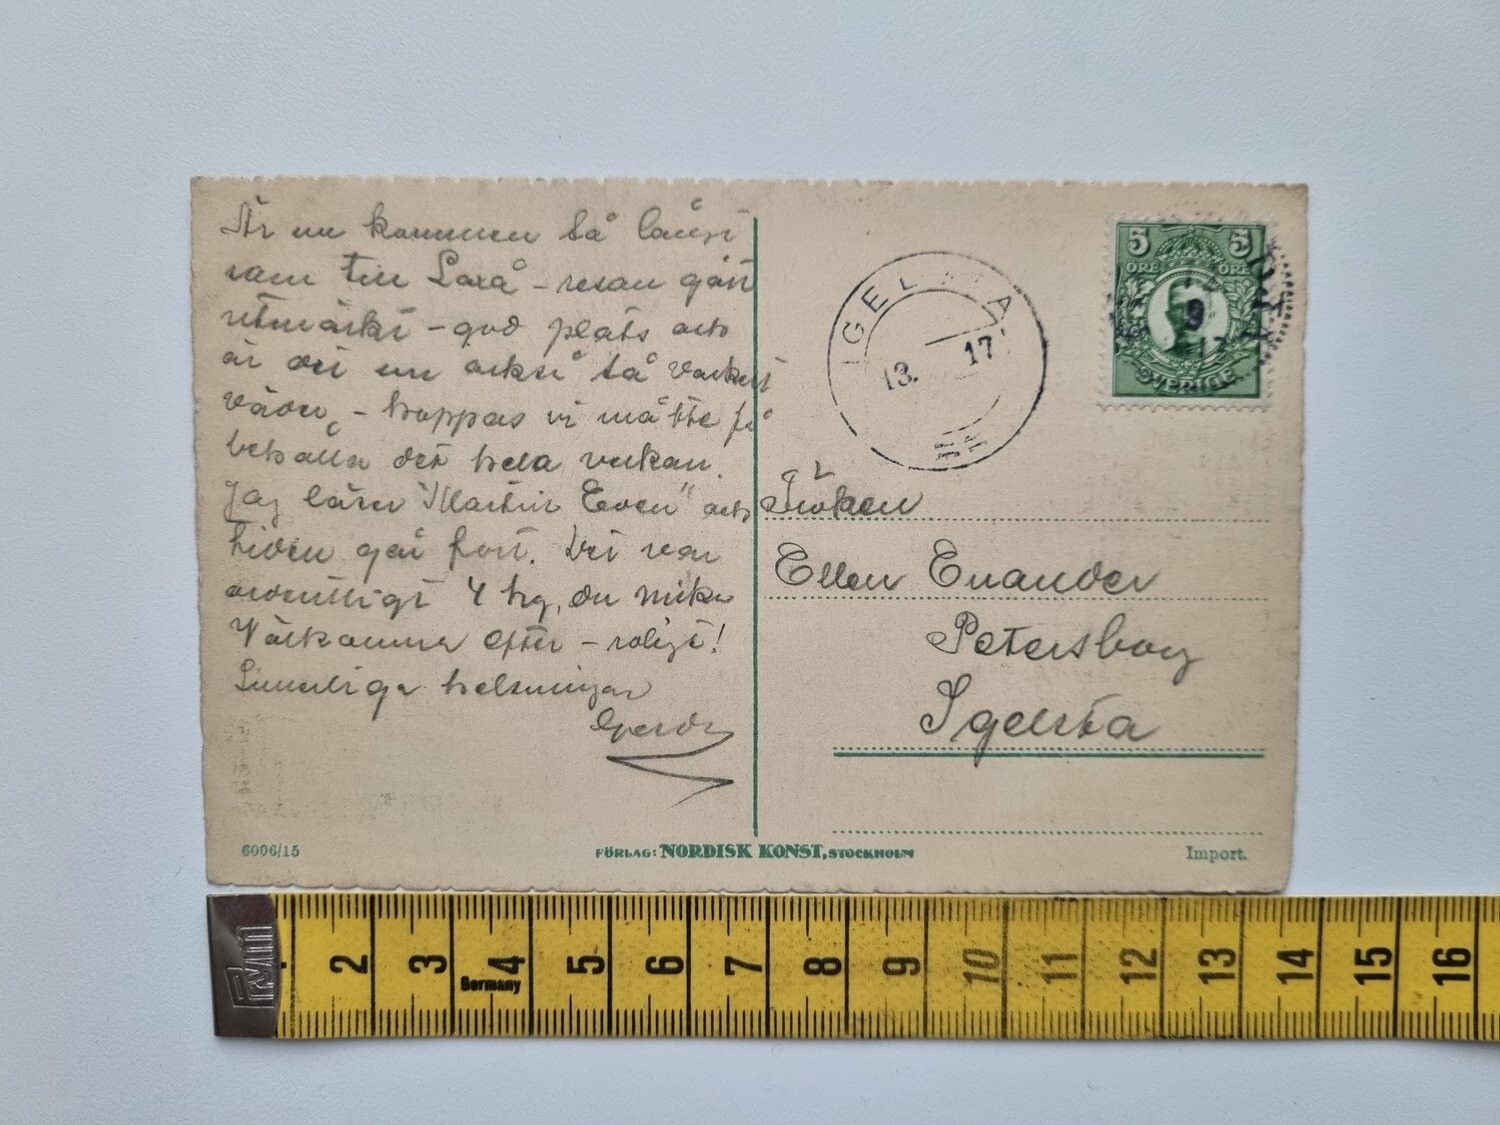 Är nu kommen så långt
som till Laxå - resan gått
utmärkt - god plats och
är det nu också så vackert
väder, - hoppas vi måtte få
behålla det hela veckan.
Jag läser "Martin Eden" och
tiden går fort. Det var
ordentligt 4 kg, du
Välkomna efter - roligt!
Hälsningar
Gerda
6006/15
FÖRLAG: NORDISK KONST, STOCKHOLM
Import.
IGELSTA
13. 17
5 5
ÖRE ÖRE
SVERIGE
9
Fröken
Ellen Enander
Petersborg
Igelsta
1 2 3 4 5 6 7 8 9 10 11 12 13 14 15 16
Germany
PRYM